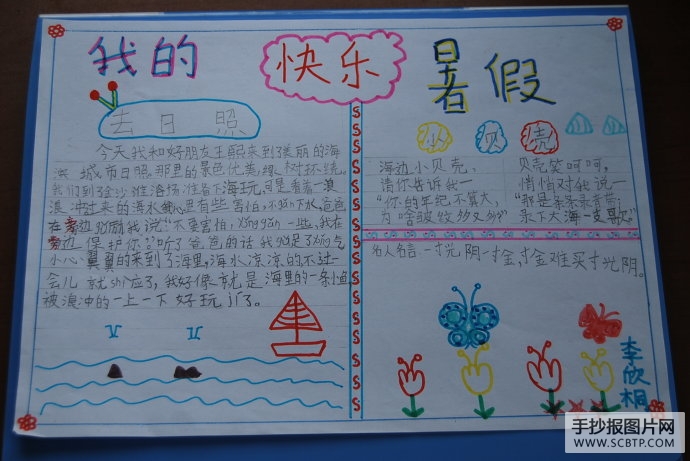 我的 快乐 暑假
去日照
今天我和好朋友王熙来到了美丽的海
滨城市日照,那里的景色优美,绿树环绕。
我们到金沙滩浴场准备下海玩,可是看着一浪
浪冲过来的海水心里有些害怕,不gǎn下水,爸爸
在旁边鼓励我说:"不要害怕,yǒnggǎn一些,我在
旁边保护你。"听了爸爸的话我鼓足了yǒng气
小心翼翼的来到了海里,海水凉凉的不过一
会儿就shì应了,我好像就是海里的一条小鱼
被浪冲的一上一下好玩jí了。
小贝壳
海边小贝壳,
请你告诉我—
"你的年纪不算大,
为啥皱纹多又多"
贝壳笑呵呵,
悄悄对我说—
"那是
录下大海一支歌。"
名人名言:一寸光阴一寸金,寸金难买寸光阴。
李欣桐
手抄报图片网
WWW.SCBTP.COM